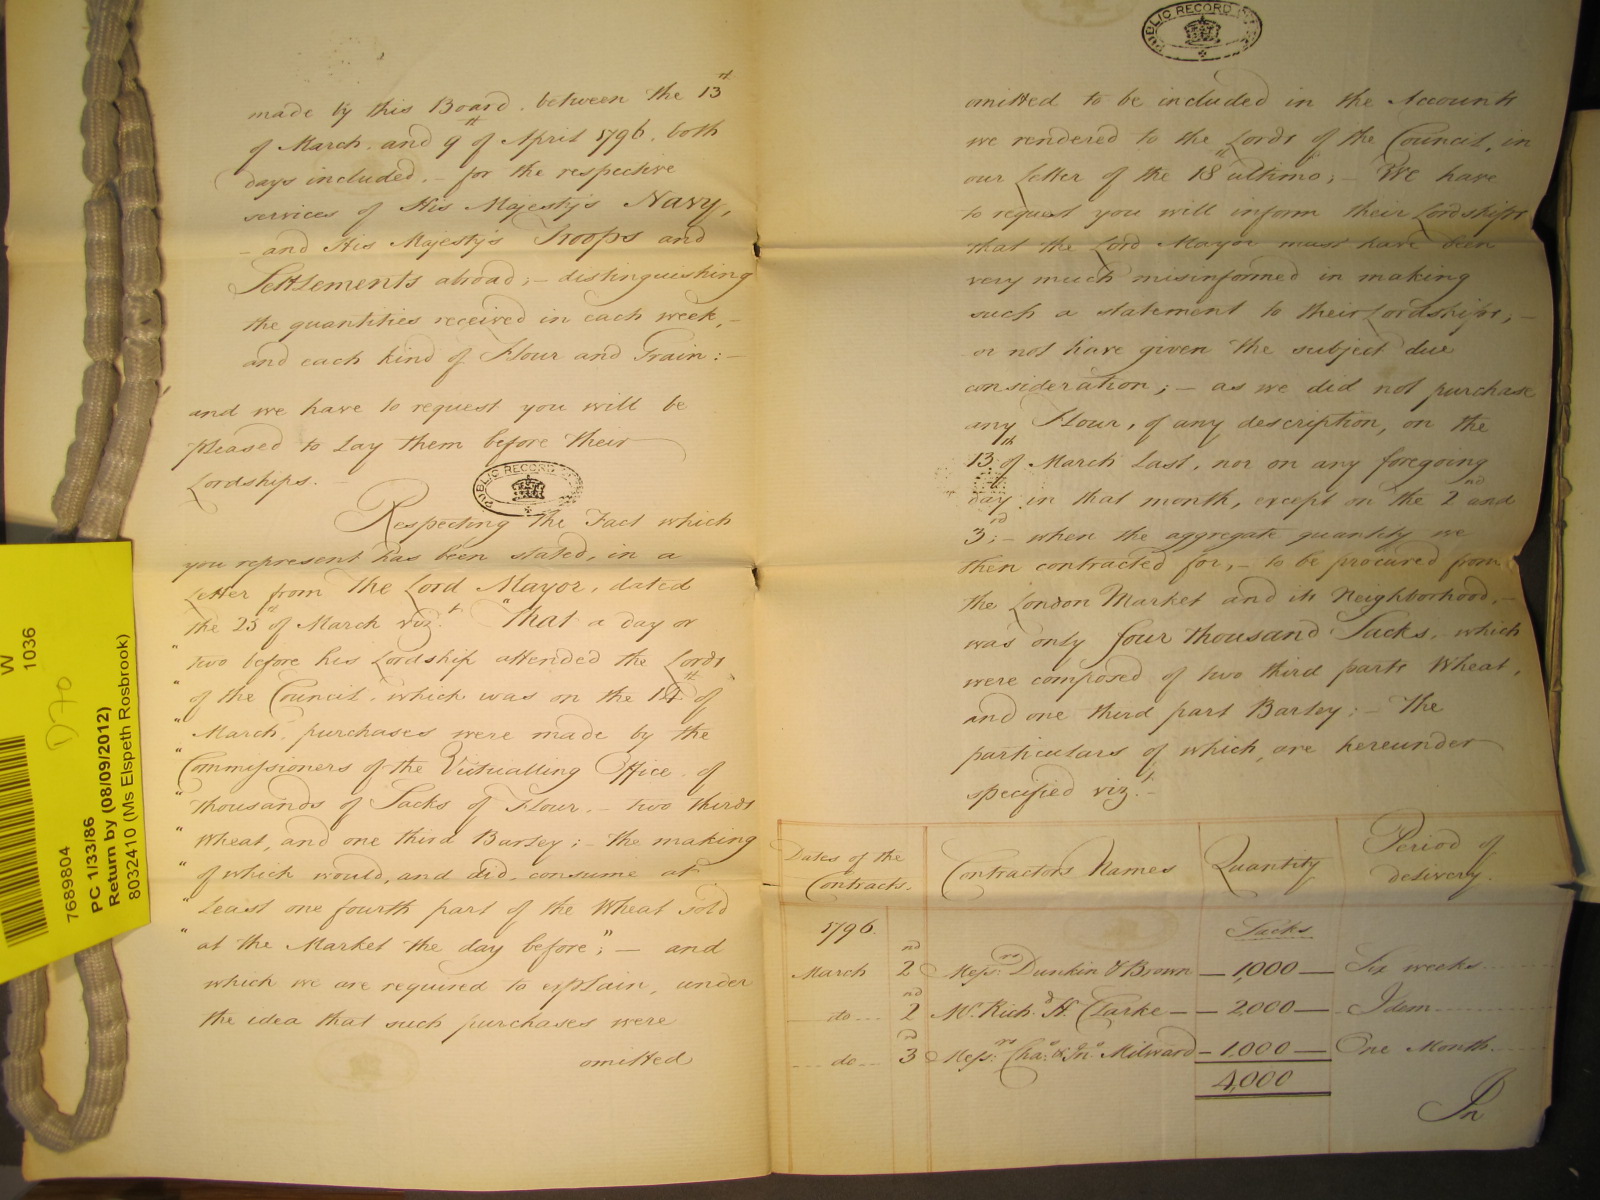 made by this Board, between the 13th
of March, and 9th of April 1796, both
days included, - for the respective
services of His Majesty's Navy,
- and His Majesty's Troops and
Settlements abroad; - distinguishing
the quantities received in each week, -
and each kind of Flour and Grain: -
and we have to request you will be
pleased to lay them before their
Lordships. -
Respecting the Fact which
you represent has been stated, in a
Letter from the Lord Mayor, dated
the 25th of March vizt. "That a day or
" two before his Lordship attended the Lords
" of the Council, which was on the 14th of
" March, purchases were made by the
" Commissioners of the Victualling Office, of
" thousands of Sacks of Flour, - two thirds
" Wheat, and one third Barley; - the making
" of which would, and did, consume at
" least one fourth part of the Wheat sold
" at the Market the day before"; - and
which we are required to explain, under
the idea that such purchases were
omitted
PUBLIC RECORD
omitted to be included in the Accounts
we rendered to the Lords of the Council, in
our Letter of the 18th ultimo; - We have
to request you will inform their Lordships
that the Lord Mayor must have been
very much misinformed in making
such a statement to their Lordships, -
or not have given the subject due
consideration; - as we did not purchase
any Flour, of any description, on the
13th of March last, nor on any foregoing
day in that month, except on the 2nd and
3rd; - when the aggregate quantity we
then contracted for, - to be procured from
the London Market and its Neighborhood, -
was only four thousand Sacks, which
were composed of two third parts Wheat,
and one third part Barley: - The
particulars of which, are hereunder
specified vizt. -
Dates of the Contracts. Contractors Names Quantity Period of delivery.
1796. Sacks
March 2nd Messrs. Dunkin & Brown - 1,000 - Six weeks
do 2nd Mr. Richd. H. Clarke - 2,000 - Idem
do 3rd Messrs. Chas. & Jno. Milward - 1,000 - One Month
4,000
In
PUBLIC RECORD
W
1036
D70
7689804
PC 1/33/86
Return by (08/09/2012)
8032410 (Ms Elspeth Rosbrook)